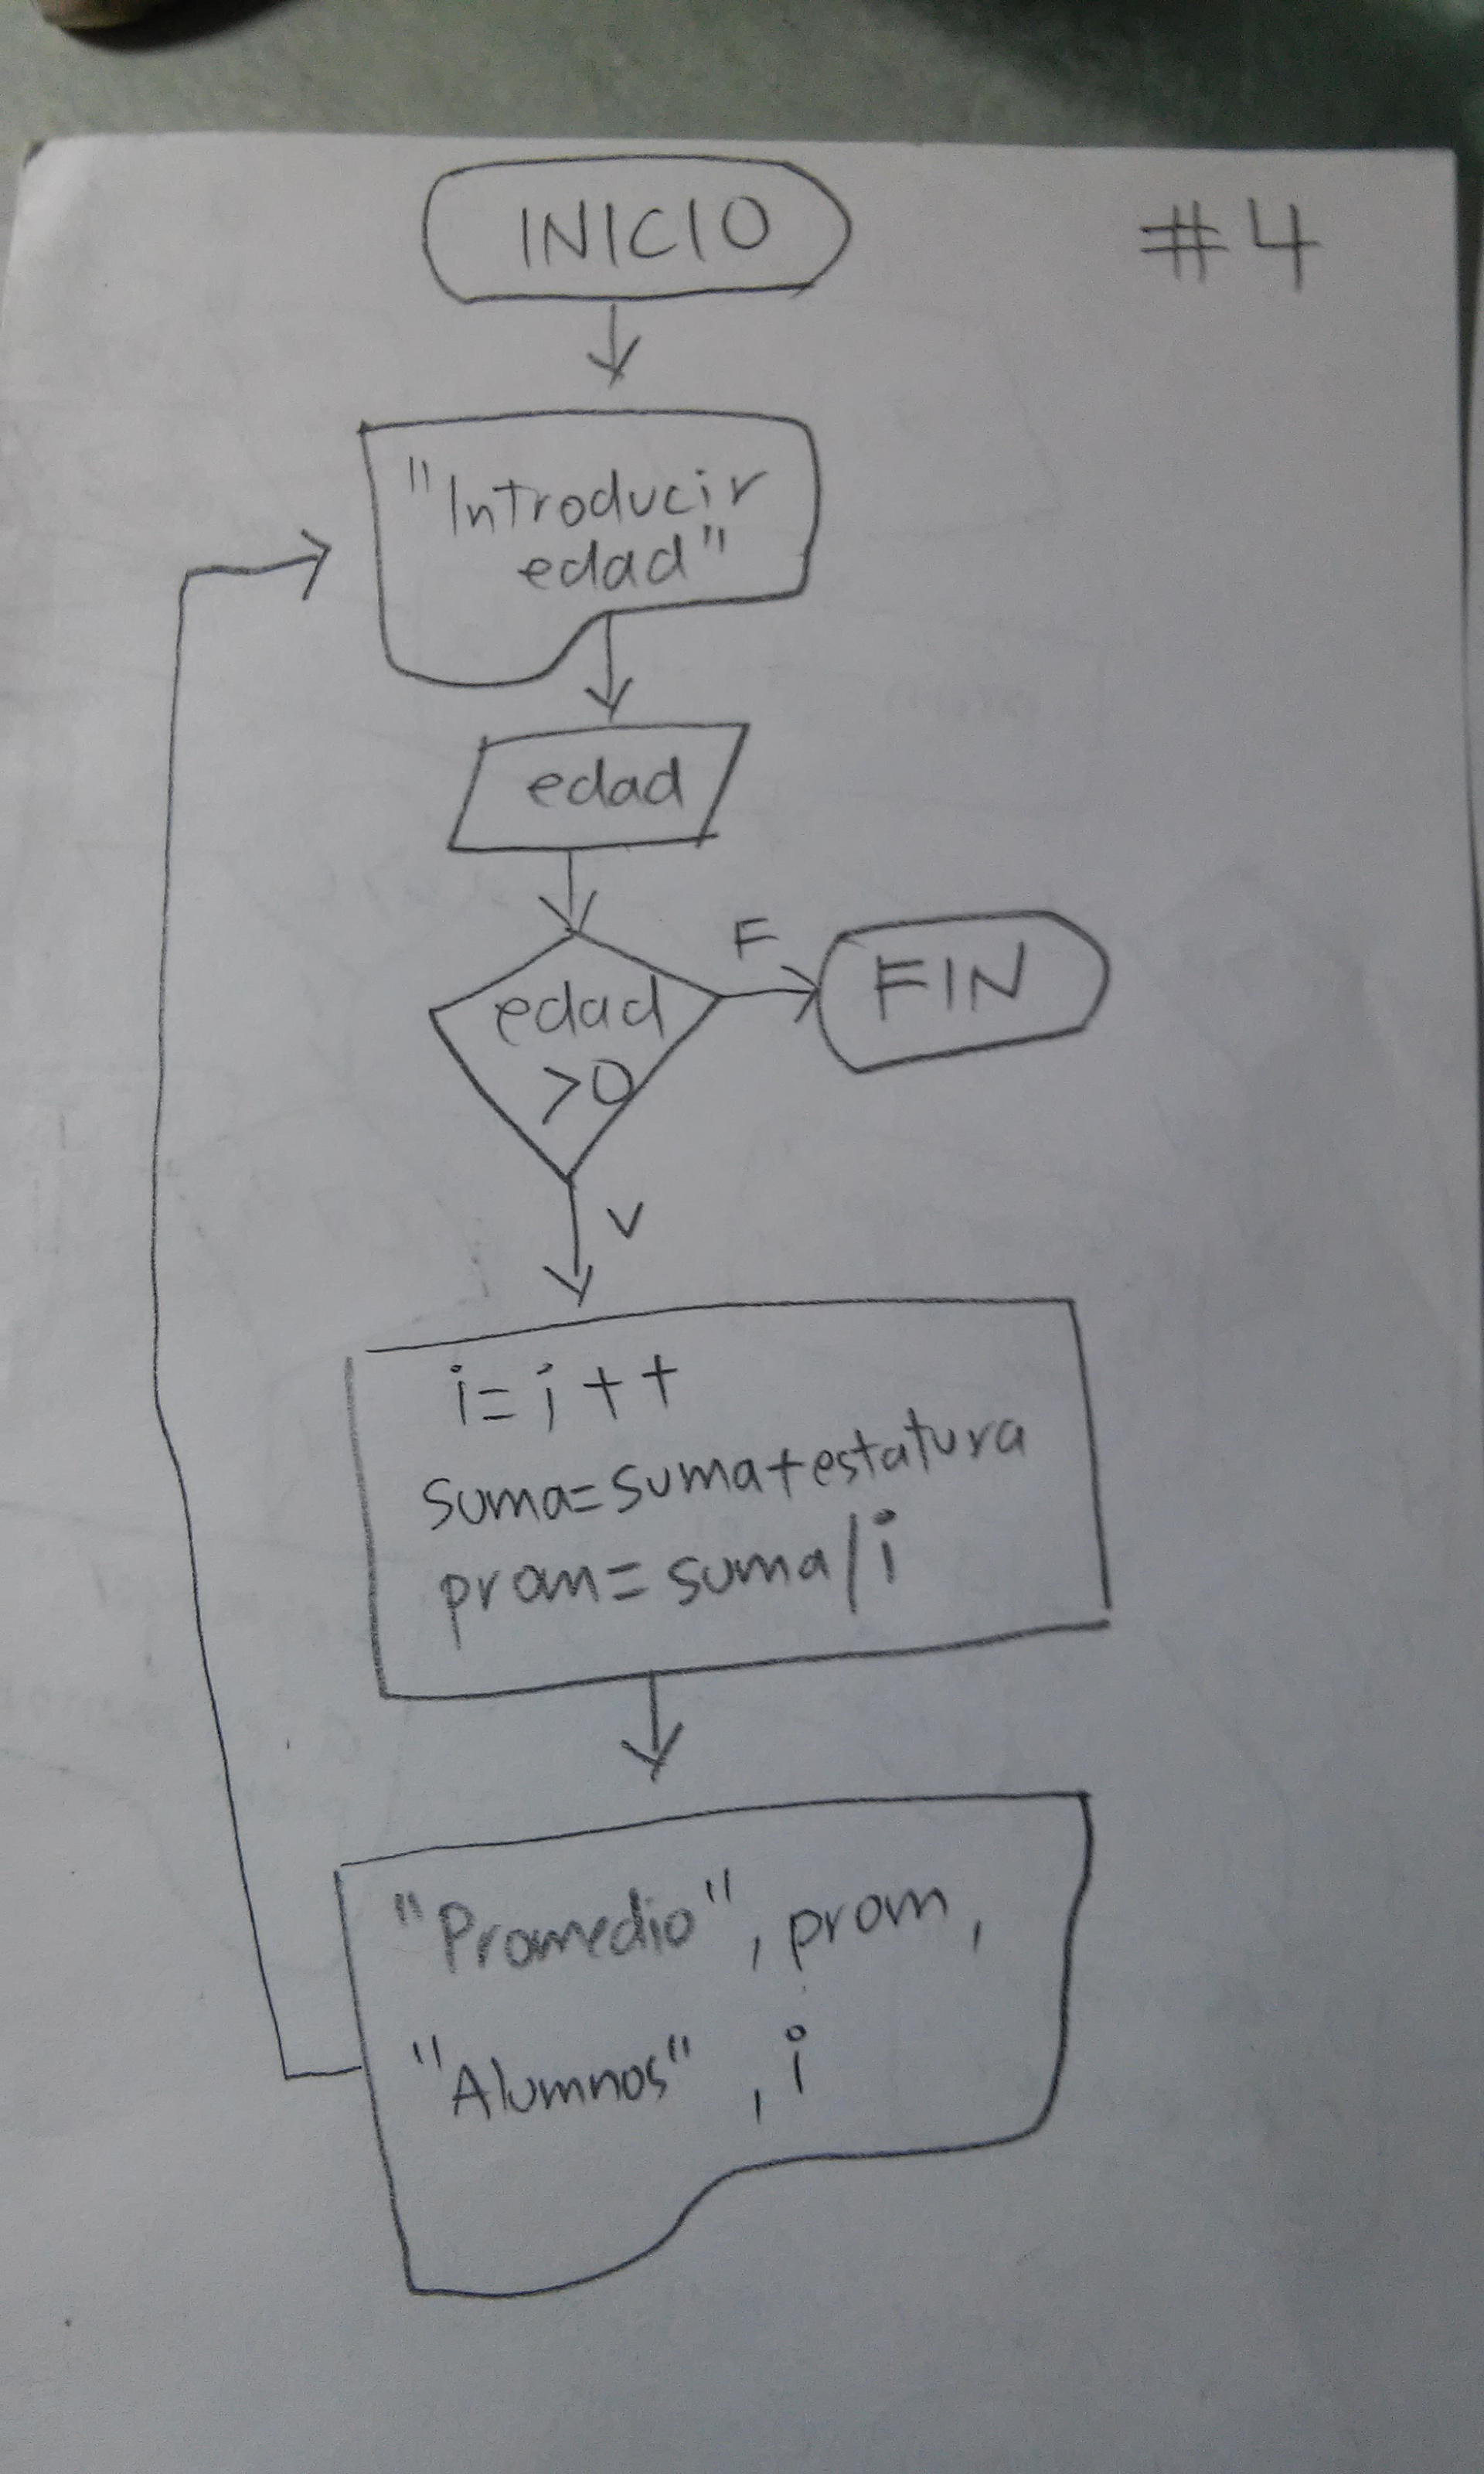 INICIO
#4
"Introducir
edad"
edad
edad
>0
F
FIN
V
i=i++
suma=suma+estatura
prom=suma/i
"Promedio", prom,
"Alumnos", i